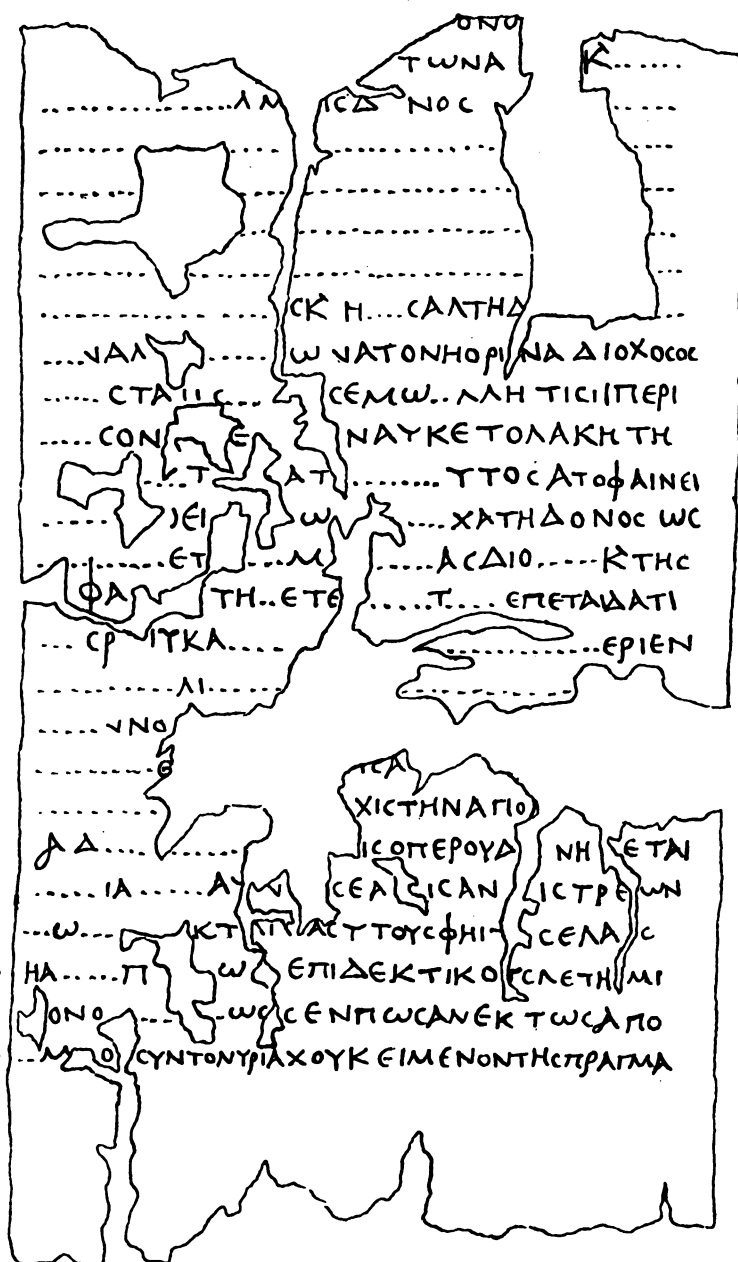 ΟΝΟ
ΤΩΝΑ Κ......
..................ΛΜ ΙϹΔ ΝΟϹ
ϹΚ Η....ϹΑΛΤΗΔ
....ΝΑΛ ...... Ω ΝΑΤΟΝΗΟΡΙ ΝΑ ΔΙΟΧΟϹΟϹ
...... ϹΤΑ ... ϹΕΜΩ..ΛΛΗ ΤΙϹΙ ΠΕΡΙ
..... ϹΟΝ Ε ΝΑΥΚΕΤΟΛΑΚΗ ΤΗ
...Τ ΑΤ ......... ΥΤΟϹΑΤΟΦΑΙΝΕΙ
...... ΕΙ Ω ....ΧΑΤΗΔΟΝΟϹ ΩϹ
......... ΕΤ ...Μ .....ΑϹΔΙΟ.....ΚΤΗϹ
ΦΑ ΤΗ..ΕΤΕ .....Τ.... ΕΠΕΤΑΙΔΑΤΙ
... ϹΡ ΙΤΥΚΑ..... ...........ΕΡΙΕΝ
......... ΛΙ......
..... ΥΝΟ
......... Ε ΙϹΑ
ΧΙϹΤΗΝΑΠΟ
ΑΔ......... ΙϹΟΠΕΡΟΥΔ ΝΗ ΕΤΑΙ
.....ΙΑ......ΑΥ ϹΕΑ ϹΙϹΑΝ ΙϹΤΡΕΩΝ
...Ω... ΚΤ ΑϹΥΤΟΥϹΦΗΙ ϹΕΛΑ Ϲ
ΗΑ......Π Ω ΕΠΙΔΕΚΤΙΚΟΥϹΛΕΤΗ ΜΙ
ΟΝΟ ...... ΩϹ ϹΕΝΠΩϹΑΝΕΚΤΩϹΑΠΟ
..ΜΠΟ ϹΥΝΤΟΝΥΡΙΑΧΟΥΚΕΙΜΕΝΟΝΤΗϹΠΡΑΓΜΑ